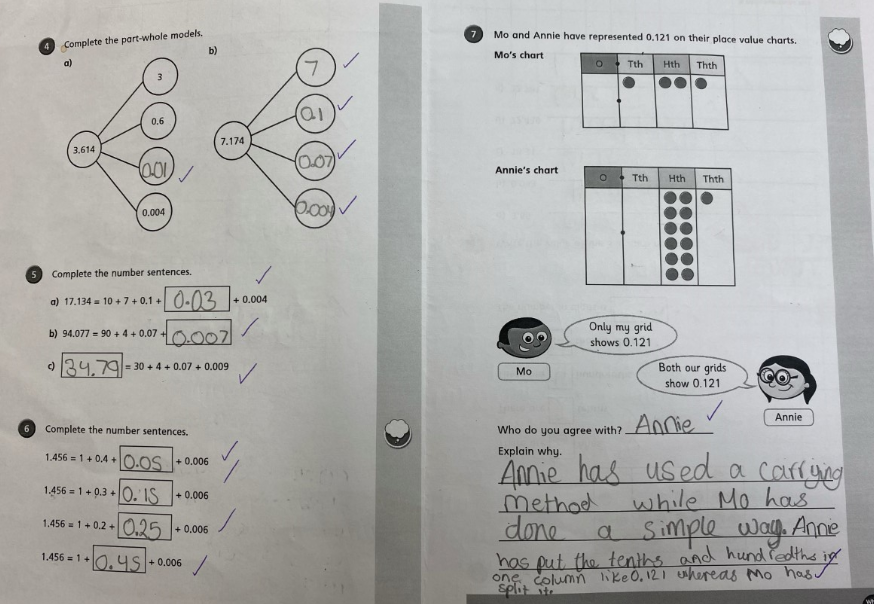 4 Complete the part-whole models.
a)
b)
3
0.6
3.614
0.01
0.004
7
0.1
7.174
0.07
0.004
5 Complete the number sentences.
a) 17.134 = 10 + 7 + 0.1 + 0.03 + 0.004
b) 94.077 = 90 + 4 + 0.07 + 0.007
c) 34.79 = 30 + 4 + 0.07 + 0.009
6 Complete the number sentences.
1.456 = 1 + 0.4 + 0.05 + 0.006
1.456 = 1 + 0.3 + 0.15 + 0.006
1.456 = 1 + 0.2 + 0.25 + 0.006
1.456 = 1 + 0.45 + 0.006
7 Mo and Annie have represented 0.121 on their place value charts.
Mo's chart
O Tth Hth Thth
Annie's chart
O Tth Hth Thth
Only my grid
shows 0.121
Mo
Both our grids
show 0.121
Annie
Who do you agree with? Annie
Explain why.
Annie has used a carrying
method while Mo has
done a simple way. Annie
has put the tenths and hundredths in
one column like 0.121 whereas Mo has
split it.